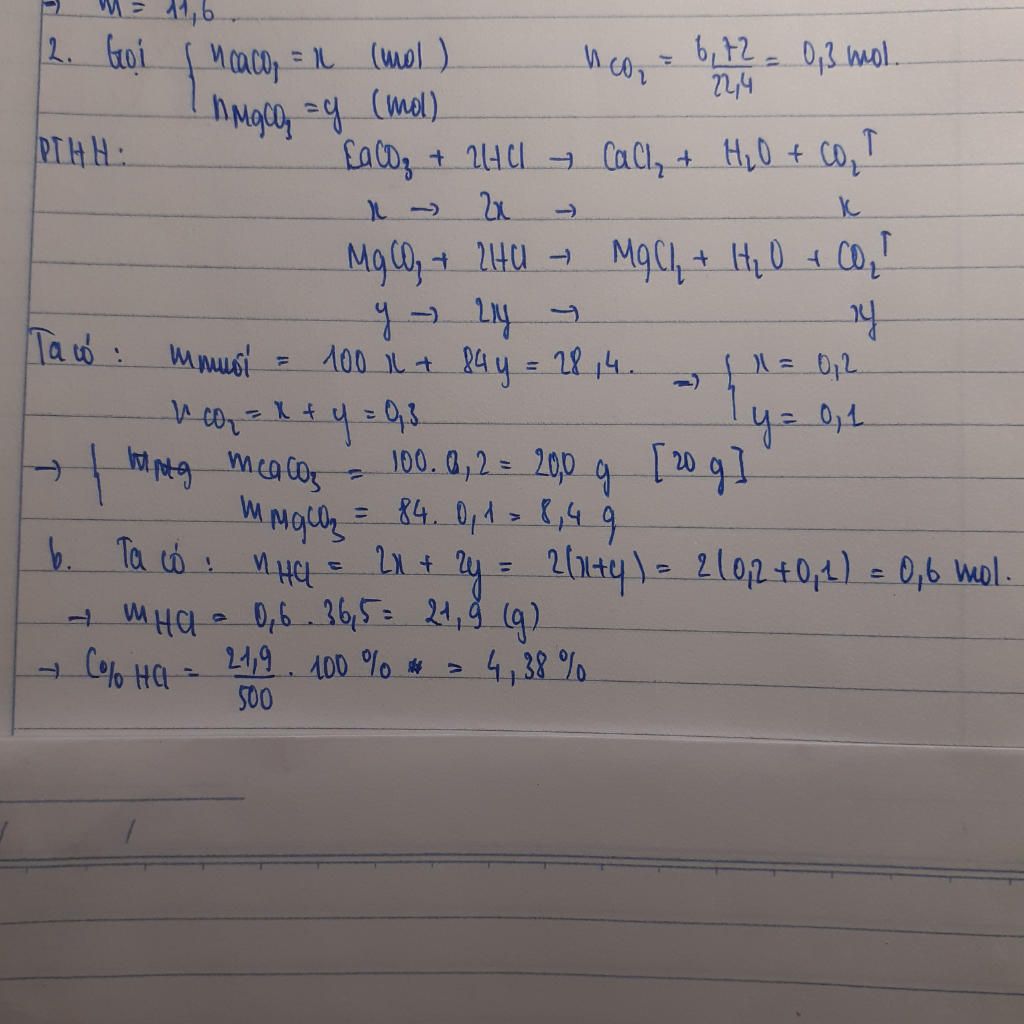 → m = 11,6.
2. Gọi { nCaCO₃ = x (mol) nCO₂ = 6,72/22,4 = 0,3 mol.
nMgCO₃ = y (mol)
PTHH: CaCO₃ + 2HCl → CaCl₂ + H₂O + CO₂↑
x → 2x → x
MgCO₃ + 2HCl → MgCl₂ + H₂O + CO₂↑
y → 2y → y
Ta có : m muối = 100x + 84y = 28,4. → { x = 0,2
nCO₂ = x + y = 0,3 y = 0,1
→ { mCaCO₃ = 100. 0,2 = 20,0 g [20 g]
mMgCO₃ = 84. 0,1 = 8,4 g
b. Ta có : nHCl = 2x + 2y = 2(x+y) = 2(0,2+0,1) = 0,6 mol.
→ mHCl = 0,6 . 36,5 = 21,9 (g)
→ C% HCl = 21,9/500 . 100 % = 4,38 %